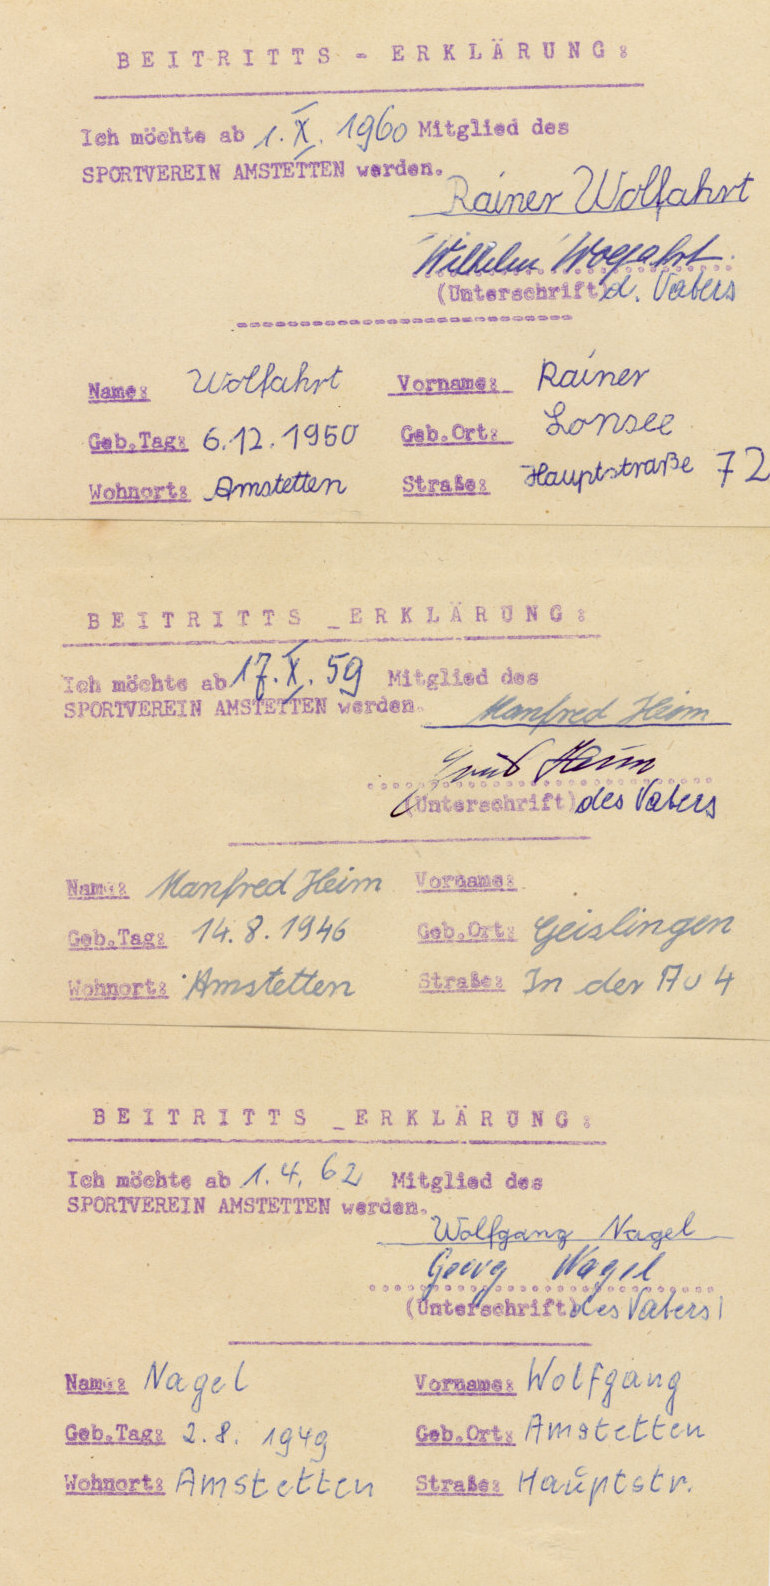 BEITRITTS - ERKLÄRUNG:
Ich möchte ab 1. X. 1960 Mitglied des
SPORTVEREIN AMSTETTEN werden.
Rainer Wolfahrt
Wilhelm Wolfahrt
(Unterschrift) d. Vaters
Name: Wolfahrt Vorname: Rainer
Geb.Tag: 6.12.1950 Geb.Ort: Lonsee
Wohnort: Amstetten Straße: Hauptstraße 72
BEITRITTS _ERKLÄRUNG:
Ich möchte ab 17. X. 59 Mitglied des
SPORTVEREIN AMSTETTEN werden.
Manfred Heim
Heim
(Unterschrift) des Vaters
Name: Manfred Heim Vorname:
Geb.Tag: 14.8.1946 Geb.Ort: Geislingen
Wohnort: Amstetten Straße: In der Au 4
BEITRITTS _ERKLÄRUNG:
Ich möchte ab 1.4.62 Mitglied des
SPORTVEREIN AMSTETTEN werden.
Wolfgang Nagel
Georg Nagel
(Unterschrift) des Vaters
Name: Nagel Vorname: Wolfgang
Geb.Tag: 2.8.1949 Geb.Ort: Amstetten
Wohnort: Amstetten Straße: Hauptstr.